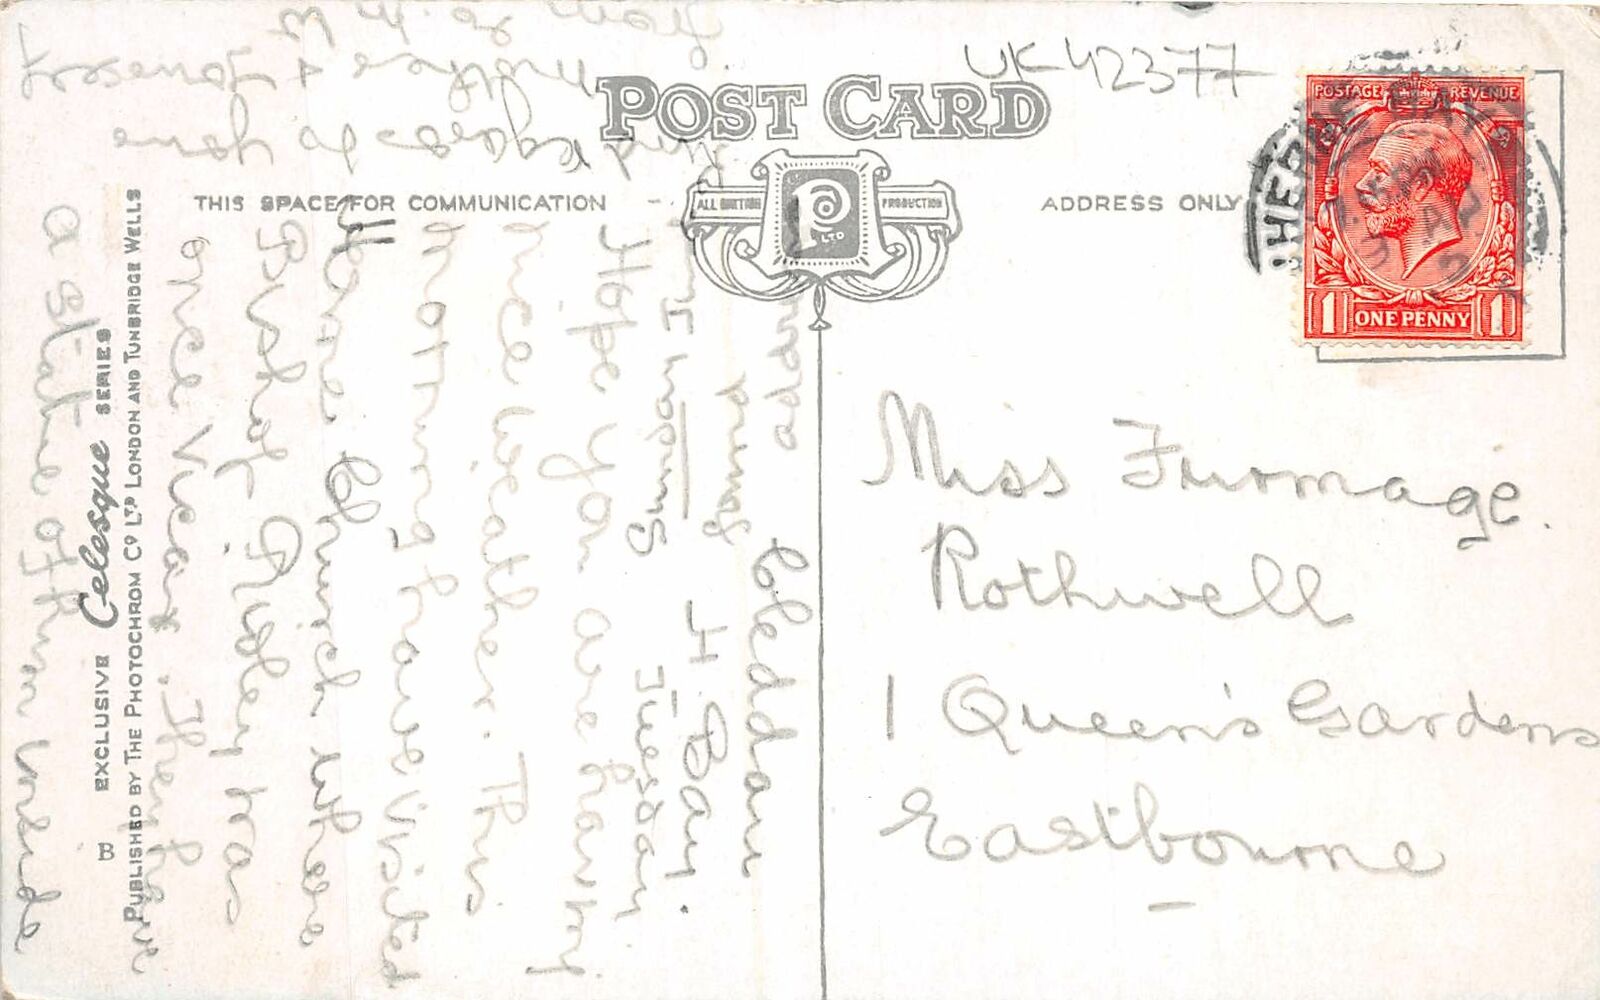 UK 42377
POST CARD
THIS SPACE FOR COMMUNICATION
ALL BRITISH PRODUCTION
P LTD
ADDRESS ONLY
POSTAGE REVENUE
1 ONE PENNY 1
HERNE BAY
Miss Furmage.
Rothwell
1 Queen's Gardens
Eastbourne
Cleddau
H. Bay.
Tuesday
Hope you are having
nice weather. This
morning have visited
Herne Church where
Bishop Ridley was
once Vicar. They have
a statue of him inside
Kind regards to your
mother & yourself
from
B EXCLUSIVE Celesque SERIES
PUBLISHED BY THE PHOTOCHROM CO LTD LONDON AND TUNBRIDGE WELLS